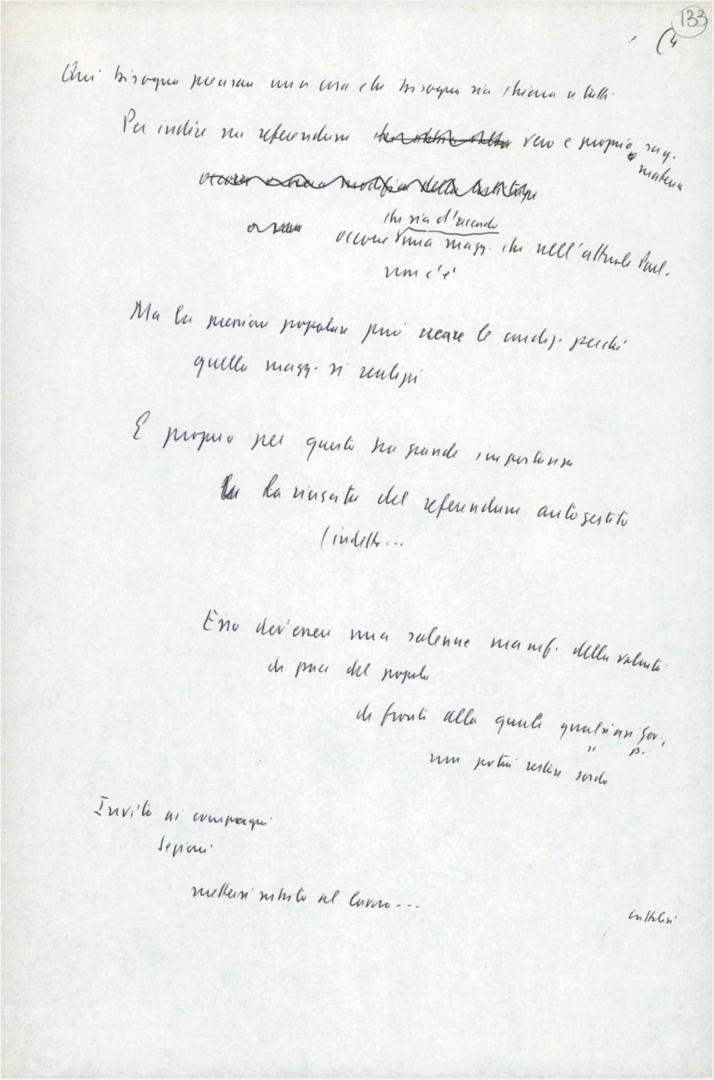 133
(4
Qui bisogna precisare una cosa che bisogna sia chiara a tutti.
Per indire un referendum vero e proprio su q.
materia
occorre una modifica della Costituz
che sia d'accordo
occorre una magg. che nell'attuale Parl.
non c'è
Ma la pressione popolare può creare le condiz. perché
quella magg. si realizzi
E proprio per questo ha grande importanza
la riuscita del referendum autogestito
(indetto...
Esso dev'essere una solenne manif. della volontà
di pace del popolo
di fronte alla quale qualsiasi gov.,
" p.
non potrà restare sordo
Invito ai compagni
Sezioni
mettersi subito al lavoro...
cattolici